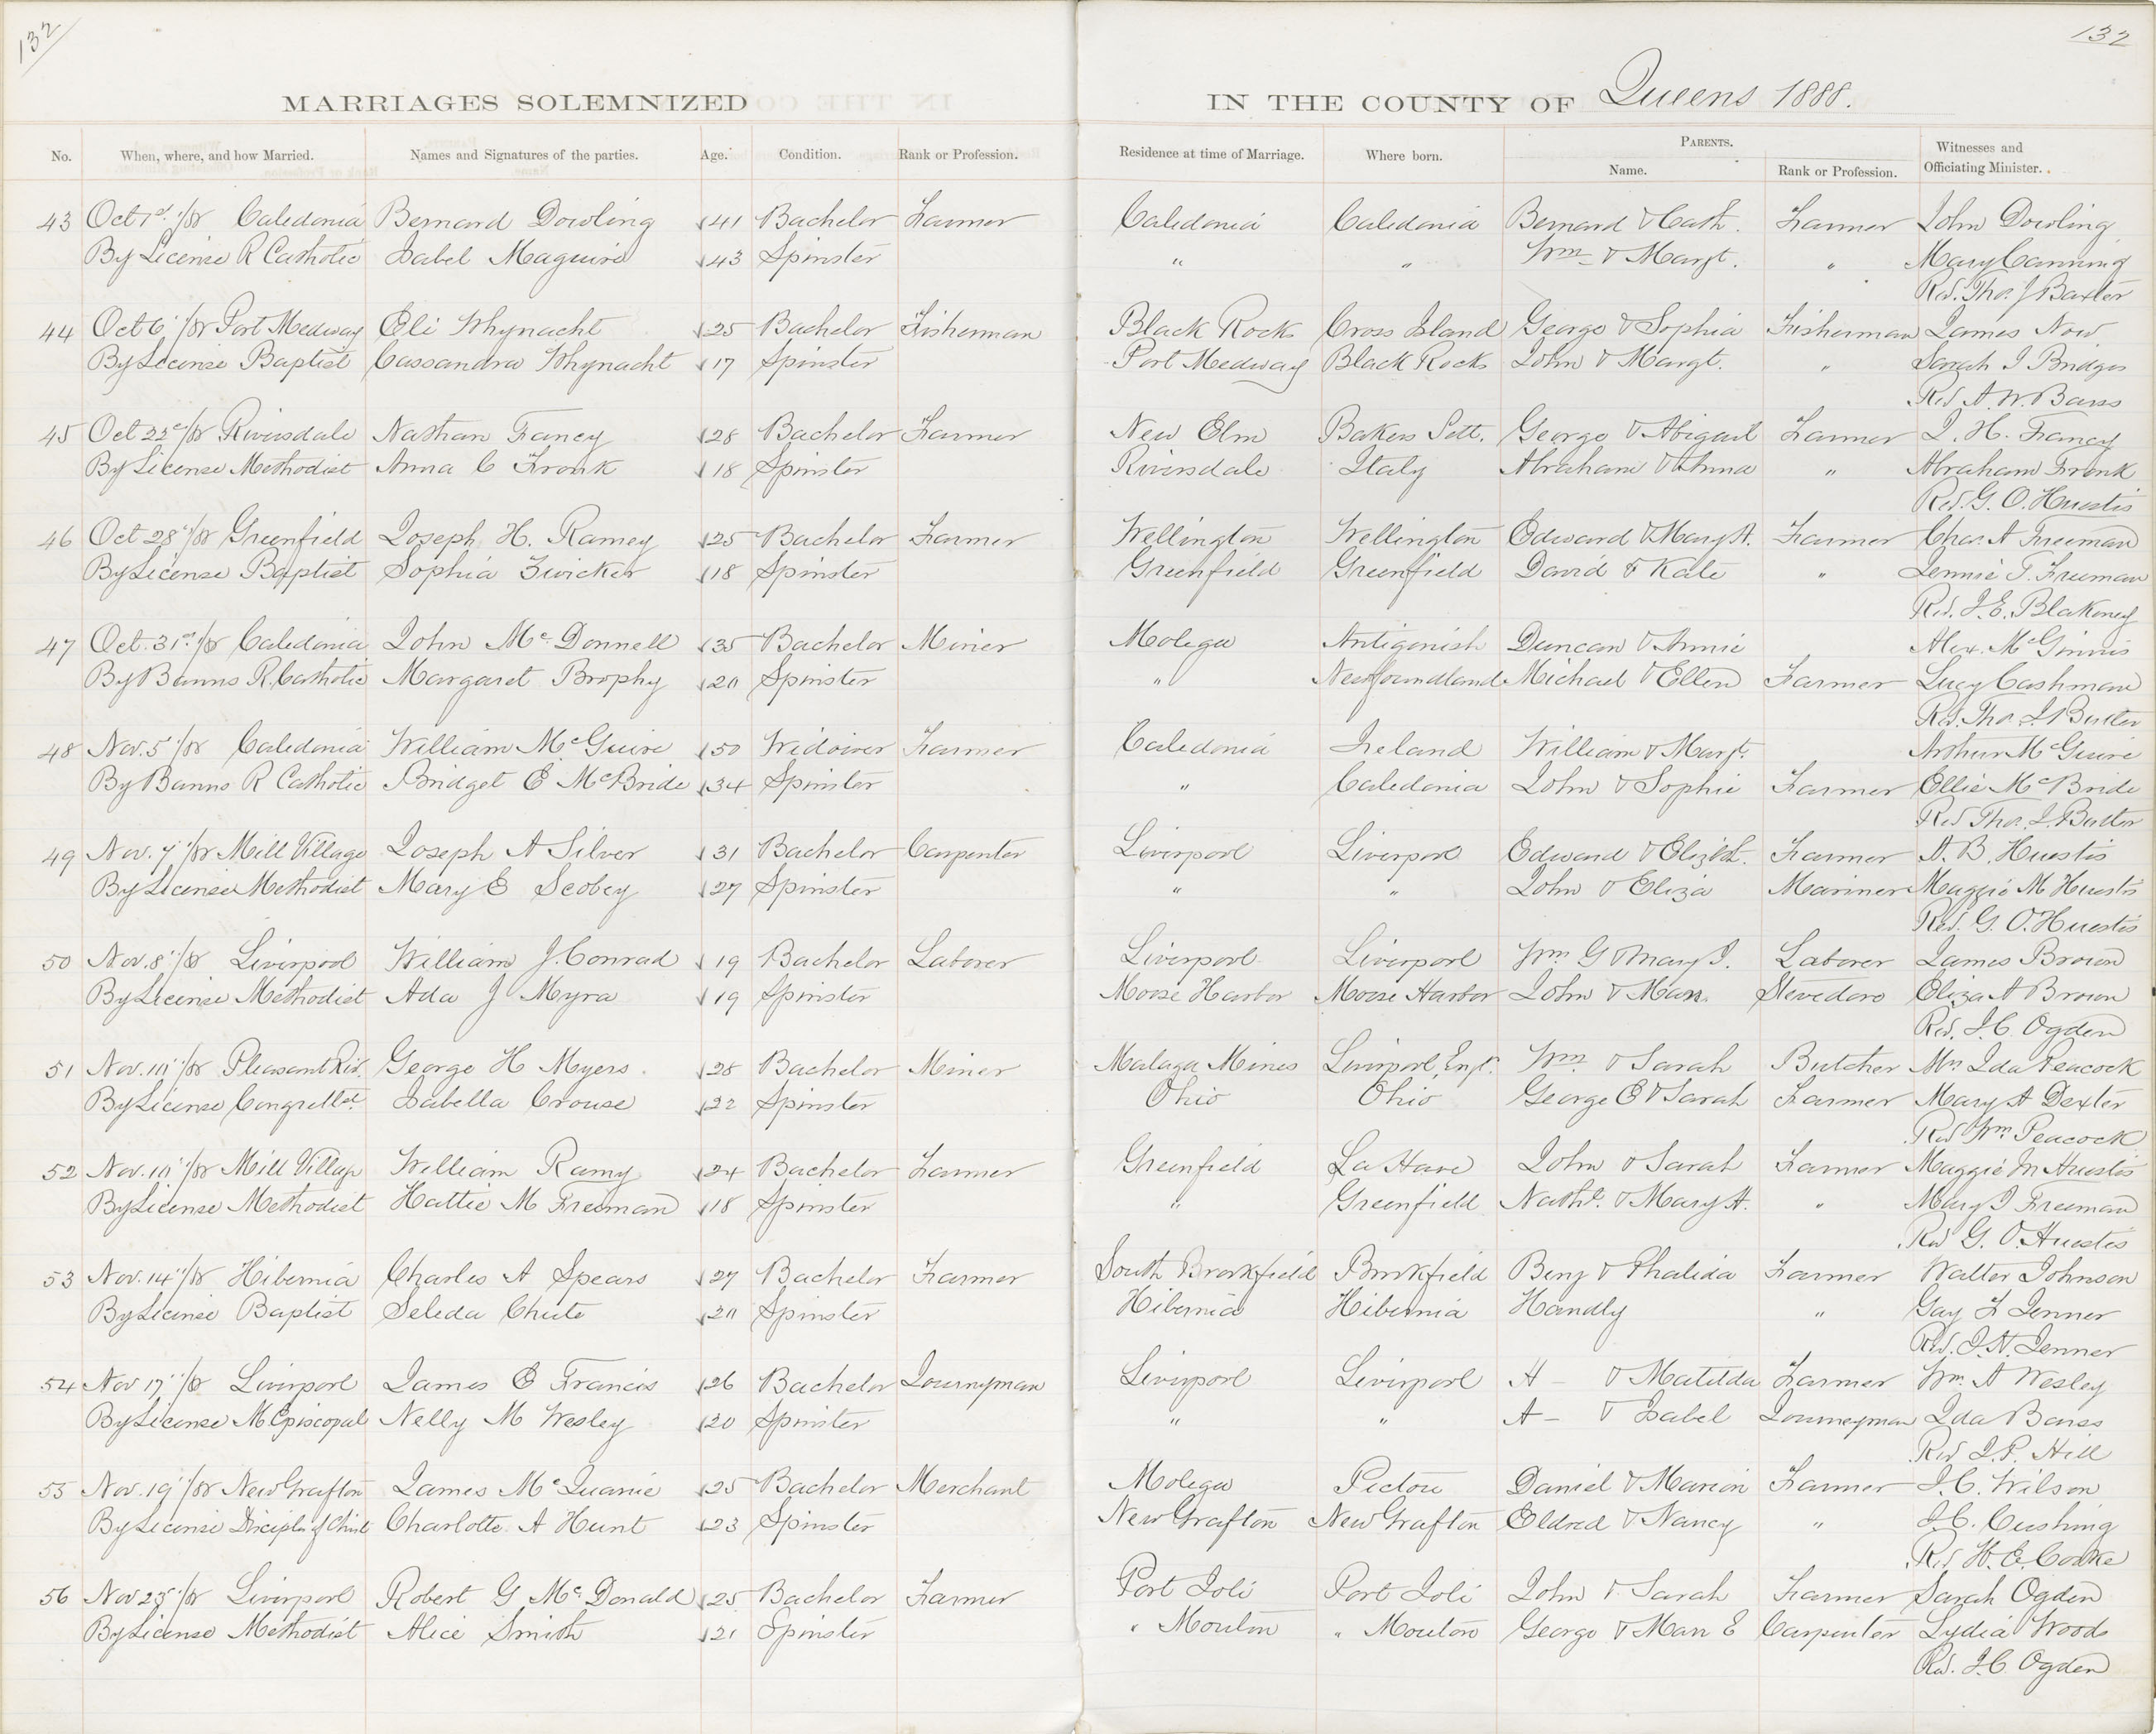 132
132
MARRIAGES SOLEMNIZED IN THE COUNTY OF Queens 1888.
No. When, where, and how Married. Names and Signatures of the parties. Age. Condition. Rank or Profession. Residence at time of Marriage. Where born. PARENTS. Name. Rank or Profession. Witnesses and Officiating Minister.
43 Oct 1st /88 Caledonia Bernard Dowling 41 Bachelor Farmer Caledonia Caledonia Bernard & Cath. Farmer John Dowling
By License R Catholic Isabel Maguire 43 Spinster " " Wm & Margt. " Mary Canning
Rev. Thos J Baxter
44 Oct 6 /88 Port Medway Eli Whynacht 25 Bachelor Fisherman Black Rocks Cross Island George & Sophia Fisherman James Now
By License Baptist Cassandra Whynacht 17 Spinster Port Medway Black Rocks John & Margt. " Sarah J Bridges
Rev A. W. Barss
45 Oct 22d /88 Riversdale Nathan Fancy 28 Bachelor Farmer New Elm Bakers Sett. George & Abigail Farmer J. H. Fancy
By License Methodist Anna C Fronk 18 Spinster Riversdale Italy Abraham & Anna " Abraham Fronk
Rev. G. O. Huestis
46 Oct 28 /88 Greenfield Joseph H. Ramey 25 Bachelor Farmer Wellington Wellington Edward & Mary A. Farmer Chas. A Freeman
By License Baptist Sophia Zwicker 18 Spinster Greenfield Greenfield David & Kate " Jennie T. Freeman
Rev. J. E. Blakeney
47 Oct. 31st /88 Caledonia John McDonnell 35 Bachelor Miner Molega Antigonish Duncan & Annie Alex. McGinnis
By Banns R. Catholic Margaret Brophy 20 Spinster " Newfoundland Michael & Ellen Farmer Lucy Cashman
Rev. Thos J Butler
48 Nov. 5 /88 Caledonia William McGuire 50 Widower Farmer Caledonia Ireland William & Margt. Arthur McGuire
By Banns R Catholic Bridget E McBride 34 Spinster " Caledonia John & Sophie Farmer Ellie McBride
Rev Thos. J. Butler
49 Nov. 7 /88 Mill Village Joseph A Silver 31 Bachelor Carpenter Liverpool Liverpool Edward & Elizbh. Farmer A. B. Huestis
By License Methodist Mary E Scobey 27 Spinster " " John & Eliza Mariner Maggie M Huestis
Rev. G. O. Huestis
50 Nov. 8 /88 Liverpool William J. Conrad 19 Bachelor Laborer Liverpool Liverpool Wm G & Mary J. Laborer James Brown
By License Methodist Ada J Myra 19 Spinster Moose Harbor Moose Harbor John & Mary Stevedore Eliza A Brown
Rev. J. C. Ogden
51 Nov. 10 /88 Pleasant Riv. George H Myers 28 Bachelor Miner Malaga Mines Liverpool, Engl. Wm & Sarah Butcher Mrs Ida Peacock
By License Isabella Crouse 22 Spinster Ohio Ohio George E & Sarah Farmer Mary A Dexter
Rev Wm Peacock
52 Nov. 10 /88 Mill Village William Ramy 24 Bachelor Farmer Greenfield La Have John & Sarah Farmer Maggie M Huestis
By License Methodist Hattie M Freeman 18 Spinster " Greenfield Nathl. & Mary A. " Mary J Freeman
Rev G. O. Huestis
53 Nov. 14 /88 Hibernia Charles A Spears 27 Bachelor Farmer South Brookfield Brookfield Benj & Phalida Farmer Walter Johnson
By License Baptist Seleda Chute 20 Spinster Hibernia Hibernia Handly " Gay F Jenner
Rev. J. H. Jenner
54 Nov 17 /88 Liverpool James E Francis 26 Bachelor Journeyman Liverpool Liverpool A – & Matilda Farmer Wm. A Wesley
By License M Episcopal Nelly M Wesley 20 Spinster " " A – & Isabel Journeyman Ida Barss
Rev J. P. Hill
55 Nov. 19 /88 New Grafton James McQuanie 25 Bachelor Merchant Molega Pictou Daniel & Marion Farmer J. C. Wilson
By License Disciples of Christ Charlotte A Hunt 23 Spinster New Grafton New Grafton Eldred & Nancy " J. C. Cushing
Rev H. E. Cooke
56 Nov 25 /88 Liverpool Robert G McDonald 25 Bachelor Farmer Port Joli Port Joli John & Sarah Farmer Sarah Ogden
By License Methodist Alice Smith 21 Spinster " Mouton " Mouton George & Mary E Carpenter Lydia Woods
Rev. J. C. Ogden